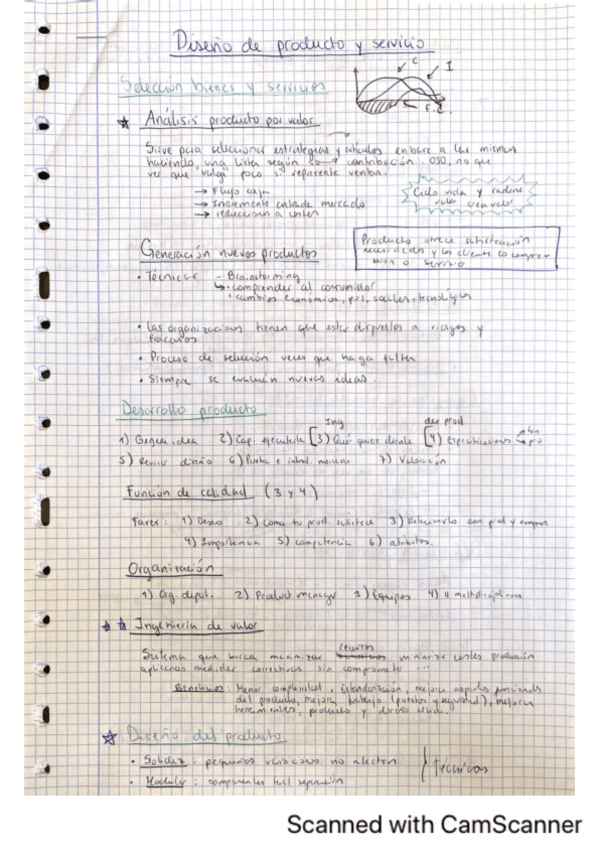 Diseño de producto y servicio
C
I
F.C.
Selección bienes y servicios
Análisis producto por valor
Sirve para seleccionar estrategias y artículos en base a las mismas
haciendo una lista según contribución. OJO, no que
ver que "valga" poco representa ventas.
→ Flujo caja
→ Incremento mercado
→ reducción costes
Ciclo vida y cadena
valor
Generación nuevos productos
Producto ofrece satisfacción
necesidades y los clientes lo compran
bien o servicio
• Técnicas - Brainstorming
• comprender al consumidor
• cambios económicos, pol, sociales, tecnológicos
• Las organizaciones tienen que estar dispuestas a riesgos y
fracasos
• Proceso de selección veces que haga falta
• Siempre se evalúan nuevas ideas.
Desarrollo producto
Ing
1) Genera idea 2) Cap. ejecutarla [3) Qué quiere cliente [4) Especificaciones
5) Revisar diseño 6) Prueba e introd. mercado 7) Valoración
Función de calidad (3 y 4)
1) Deseo 2) como tu prod. satisface 3) Relacionarlo con prod y
4) Importancia 5) competencia 6) atributos.
Organización
1) Org. depart. 2) Product manager 3) Equipos 4) " multidisciplinares
Ingeniería de valor
recursos
Sistema que busca minimizar minimizar costes producción
aplicando medidas correctivas sin comprometer ...
Beneficios: Menor complejidad, estandarización, mejora aspectos funcionales
del producto, mejora trabajo (puestos y seguridad), mejora
producto y diseño
Diseño del producto
• Solidez: pequeñas variaciones no afectan
• Modular: componentes fácil separación
Técnicas
Scanned with CamScanner